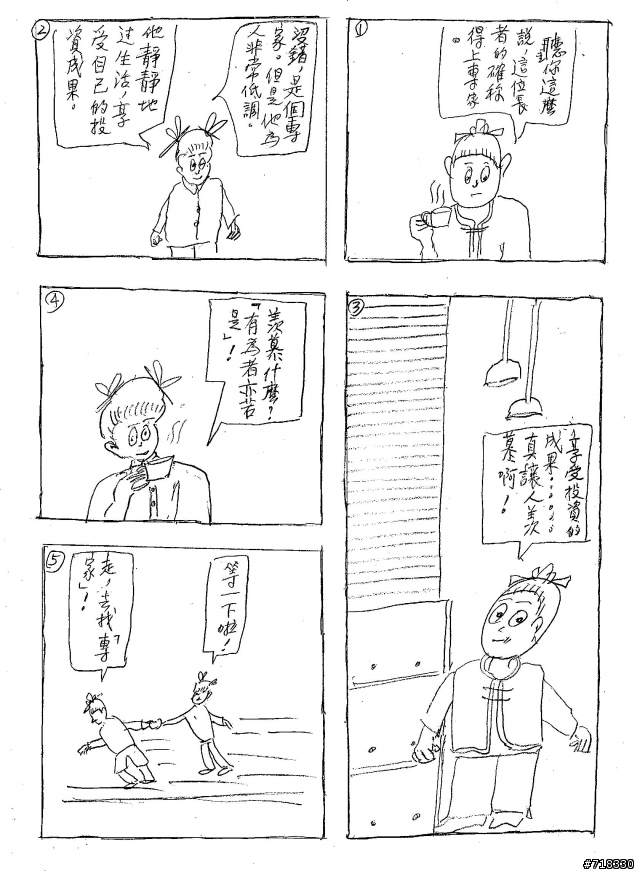 ①
聽你這麼
說，這位長
者的確稱
得上專家
。
②
沒錯，是個專
家。但是他為
人非常低調。
他靜靜地
過生活，享
受自己的投
資成果。
③
享受投資的
成果……
真讓人羨
慕啊！
④
羨慕什麼？
「有為者亦若
是」！
⑤
等一下啦！
走，去找「專
家」！
#718330